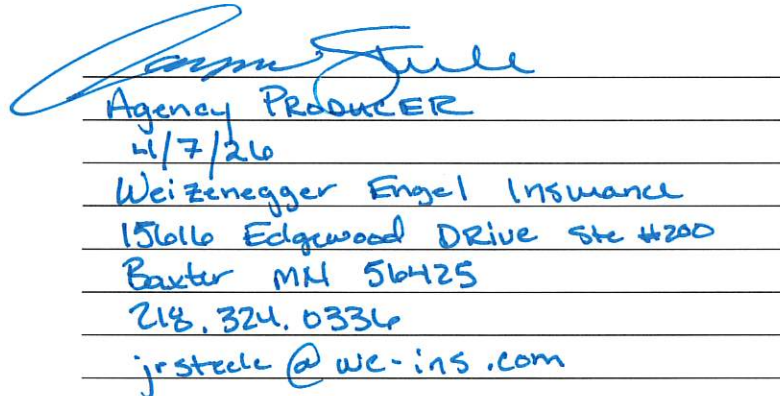 Agency PRODUCER
4/7/26
Weizenegger Engel Insurance
15616 Edgewood DRive Ste #200
Baxter MN 56425
218.324.0336
jrsteele@we-ins.com